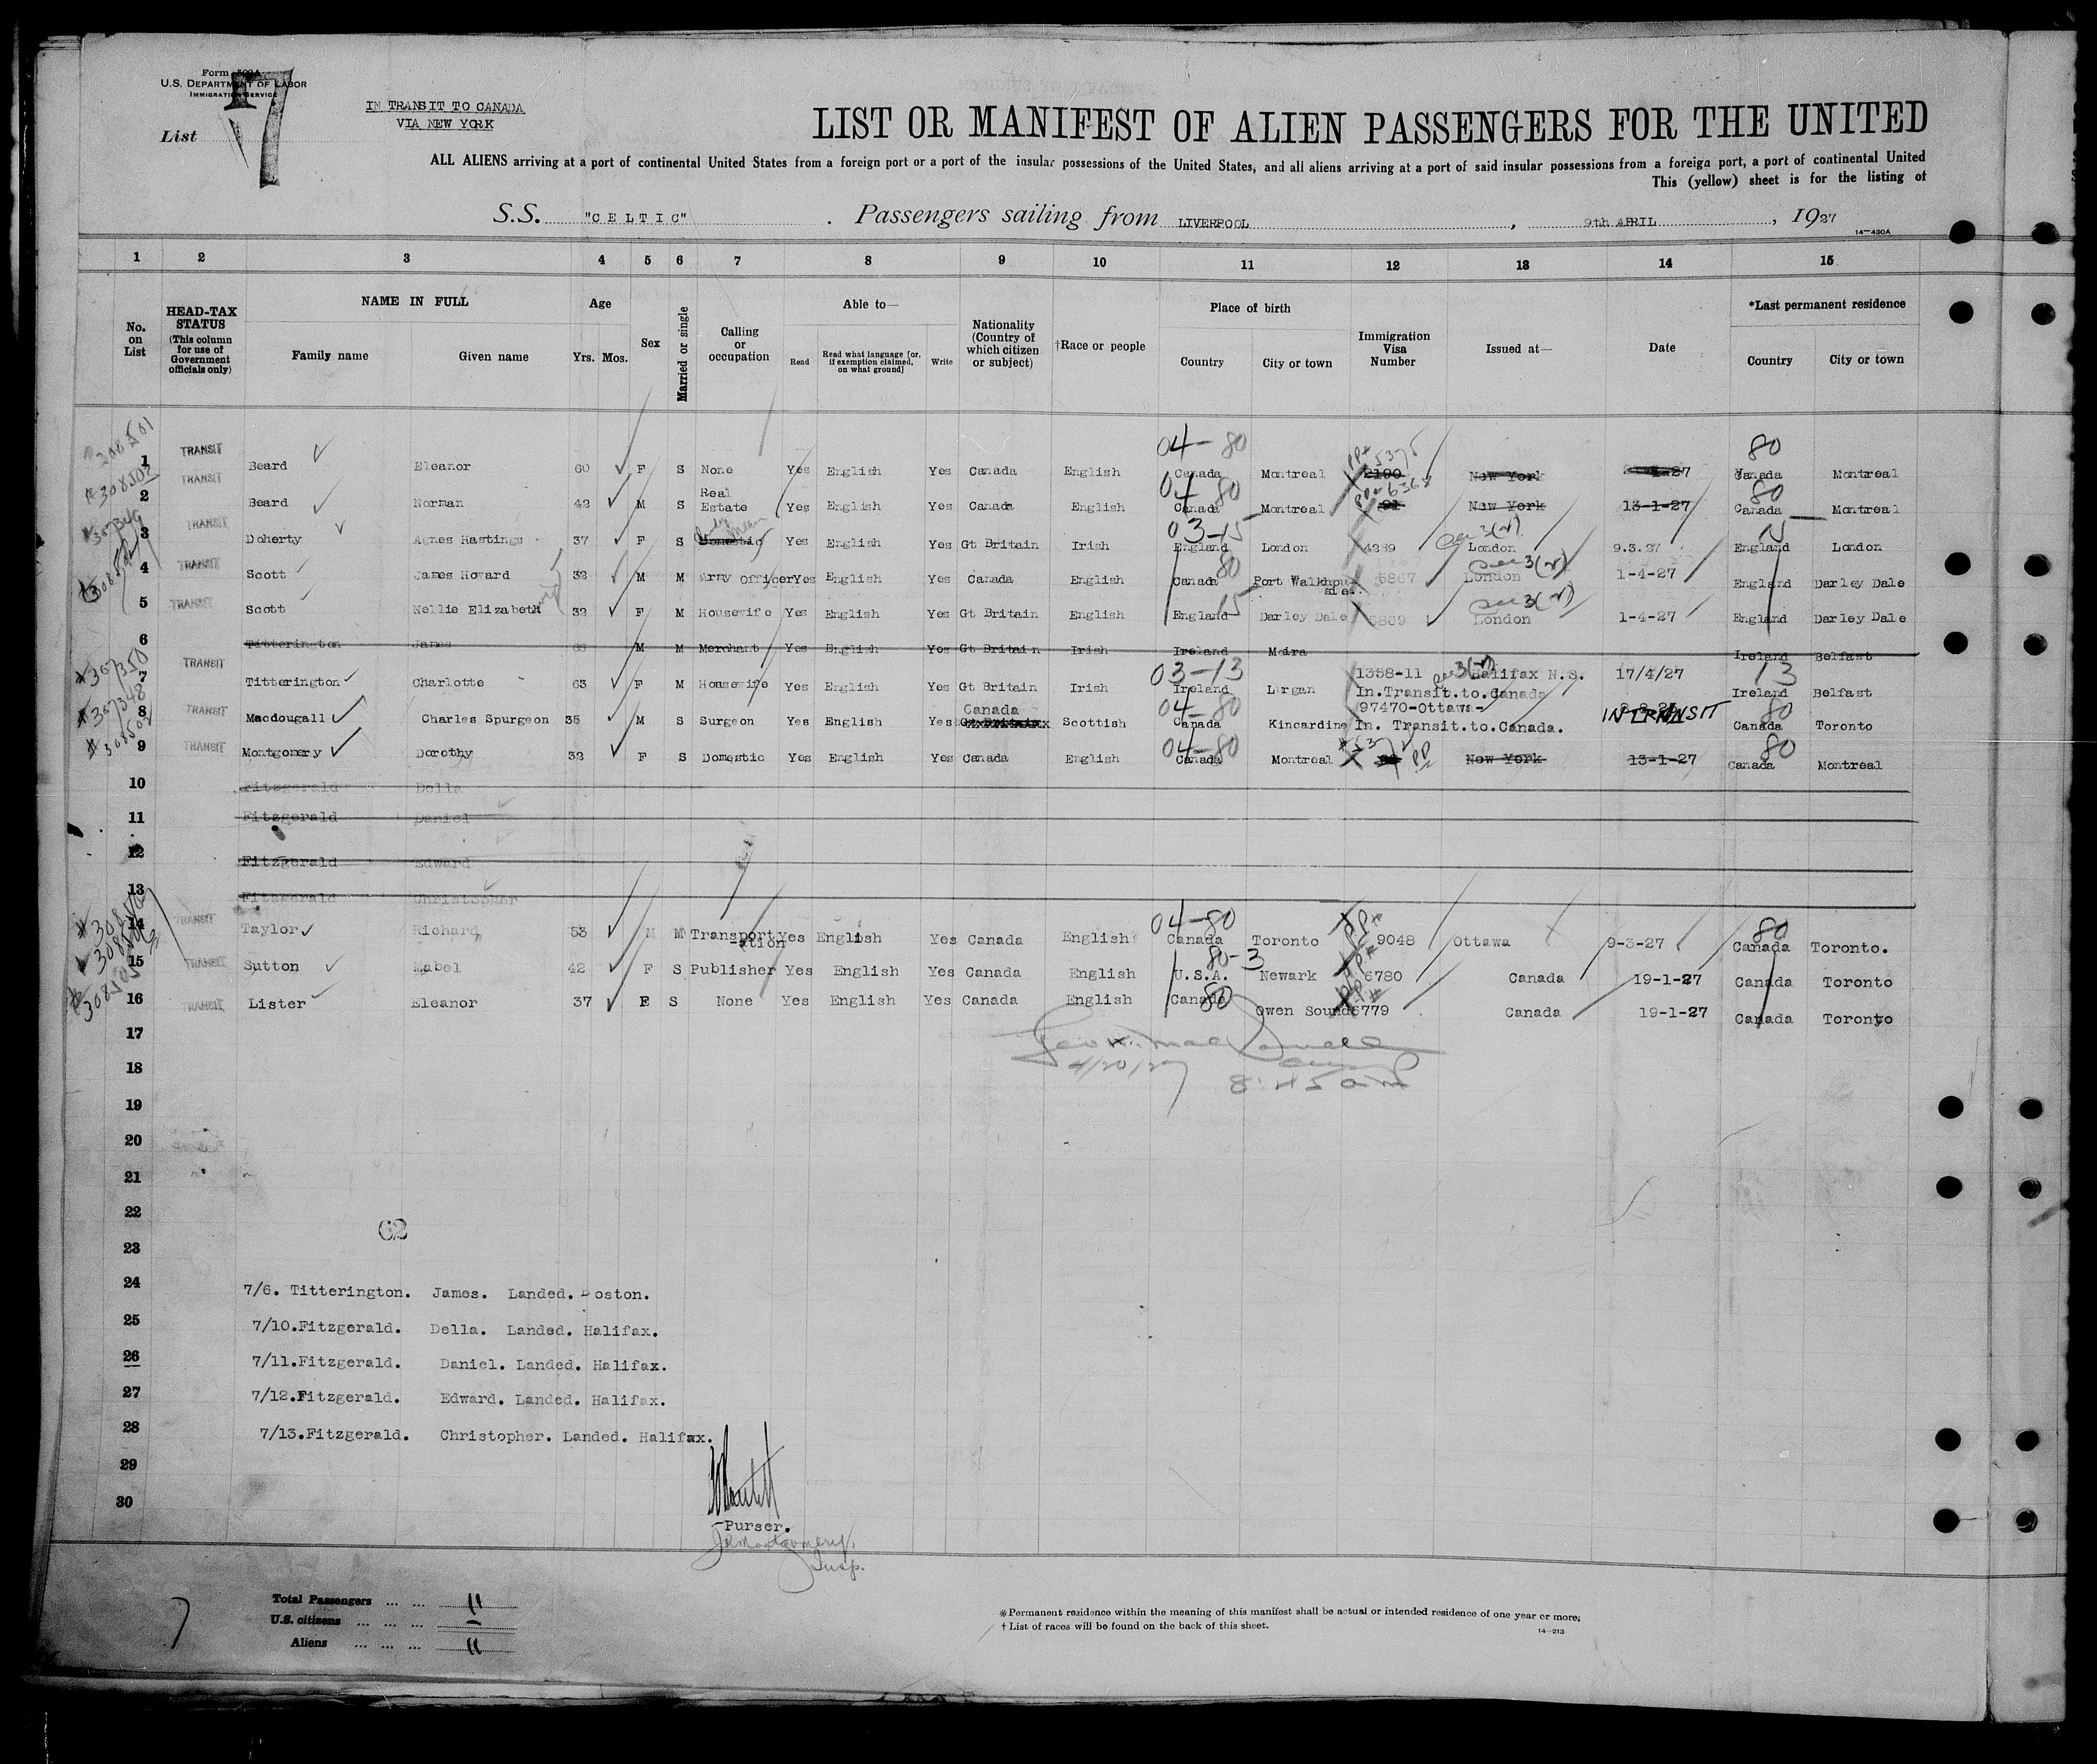 Form 500A
U.S. DEPARTMENT OF LABOR
IMMIGRATION SERVICE
List 7
IN TRANSIT TO CANADA
VIA NEW YORK
LIST OR MANIFEST OF ALIEN PASSENGERS FOR THE UNITED
ALL ALIENS arriving at a port of continental United States from a foreign port or a port of the insular possessions of the United States, and all aliens arriving at a port of said insular possessions from a foreign port, a port of continental United
This (yellow) sheet is for the listing of
S.S. "CELTIC" . Passengers sailing from LIVERPOOL , 9th APRIL , 1927
14—430A
1 2 3 4 5 6 7 8 9 10 11 12 13 14 15
No. on List
HEAD-TAX STATUS
(This column for use of Government officials only)
NAME IN FULL
Family name Given name
Age
Yrs. Mos.
Sex
Married or single
Calling or occupation
Able to—
Read Read what language [or, if exemption claimed, on what ground] Write
Nationality (Country of which citizen or subject)
†Race or people
Place of birth
Country City or town
Immigration Visa Number
Issued at—
Date
*Last permanent residence
Country City or town
04-80 80
1 TRANSIT Beard Eleanor 60 F S None Yes English Yes Canada English Canada Montreal 2190 5375 New York Canada Montreal
308502
04 80 80
2 TRANSIT Beard Norman 42 M S Real Estate Yes English Yes Canada English Canada Montreal 91 New York 13-1-27 Canada Montreal
03-15 15
3 TRANSIT Doherty Agnes Hastings 37 F S Domestic Yes English Yes Gt Britain Irish England London 4289 London 9.3.27 England London
80
4 TRANSIT Scott James Howard 32 M M Army Officer Yes English Yes Canada English Canada Port Walkhou 5867 London 1-4-27 England Darley Dale
15
5 TRANSIT Scott Nellie Elizabeth 32 F M Housewife Yes English Yes Gt Britain English England Darley Dale 5869 London 1-4-27 England Darley Dale
6 Titterington James M M Merchant Yes English Yes Gt Britain Irish Ireland Moira Ireland Belfast
03-13 13
7 TRANSIT Titterington Charlotte 63 F M Housewife Yes English Yes Gt Britain Irish Ireland Lurgan 1358-11 Halifax N.S. 17/4/27 Ireland Belfast
In.Transit.to.Canada
04-80 80
8 TRANSIT Macdougall Charles Spurgeon 35 M S Surgeon Yes English Yes Canada Gt Britain Scottish Canada Kincardine 97470-Ottawa- IN TRANSIT Canada Toronto
In. Transit.to.Canada.
04-80 80
9 TRANSIT Montgomery Dorothy 32 F S Domestic Yes English Yes Canada English Canada Montreal PP New York 13-1-27 Canada Montreal
10 Fitzgerald Della
11 Fitzgerald Daniel
12 Fitzgerald Edward
13 Fitzgerald Christopher
04-80 80
14 TRANSIT Taylor Richard 53 M M Transport-ation Yes English Yes Canada English Canada Toronto 9048 Ottawa 9-3-27 Canada Toronto.
80-3
15 TRANSIT Sutton Mabel 42 F S Publisher Yes English Yes Canada English U.S.A. Newark 6780 Canada 19-1-27 Canada Toronto
80
16 TRANSIT Lister Eleanor 37 F S None Yes English Yes Canada English Canada Owen Sound 6779 Canada 19-1-27 Canada Toronto
17
4/20/27 8:45 am
18
19
20
21
22
62
23
24 7/6. Titterington. James. Landed. Boston.
25 7/10.Fitzgerald. Della. Landed. Halifax.
26 7/11.Fitzgerald. Daniel. Landed. Halifax.
27 7/12.Fitzgerald. Edward. Landed. Halifax.
28 7/13.Fitzgerald. Christopher. Landed. Halifax.
29
30
Purser.
Montgomery,
Insp.
7
Total Passengers ... ... 11
U.S. citizens ... ... ... —
Aliens ... ... ... 11
*Permanent residence within the meaning of this manifest shall be actual or intended residence of one year or more.
† List of races will be found on the back of this sheet.
14—213